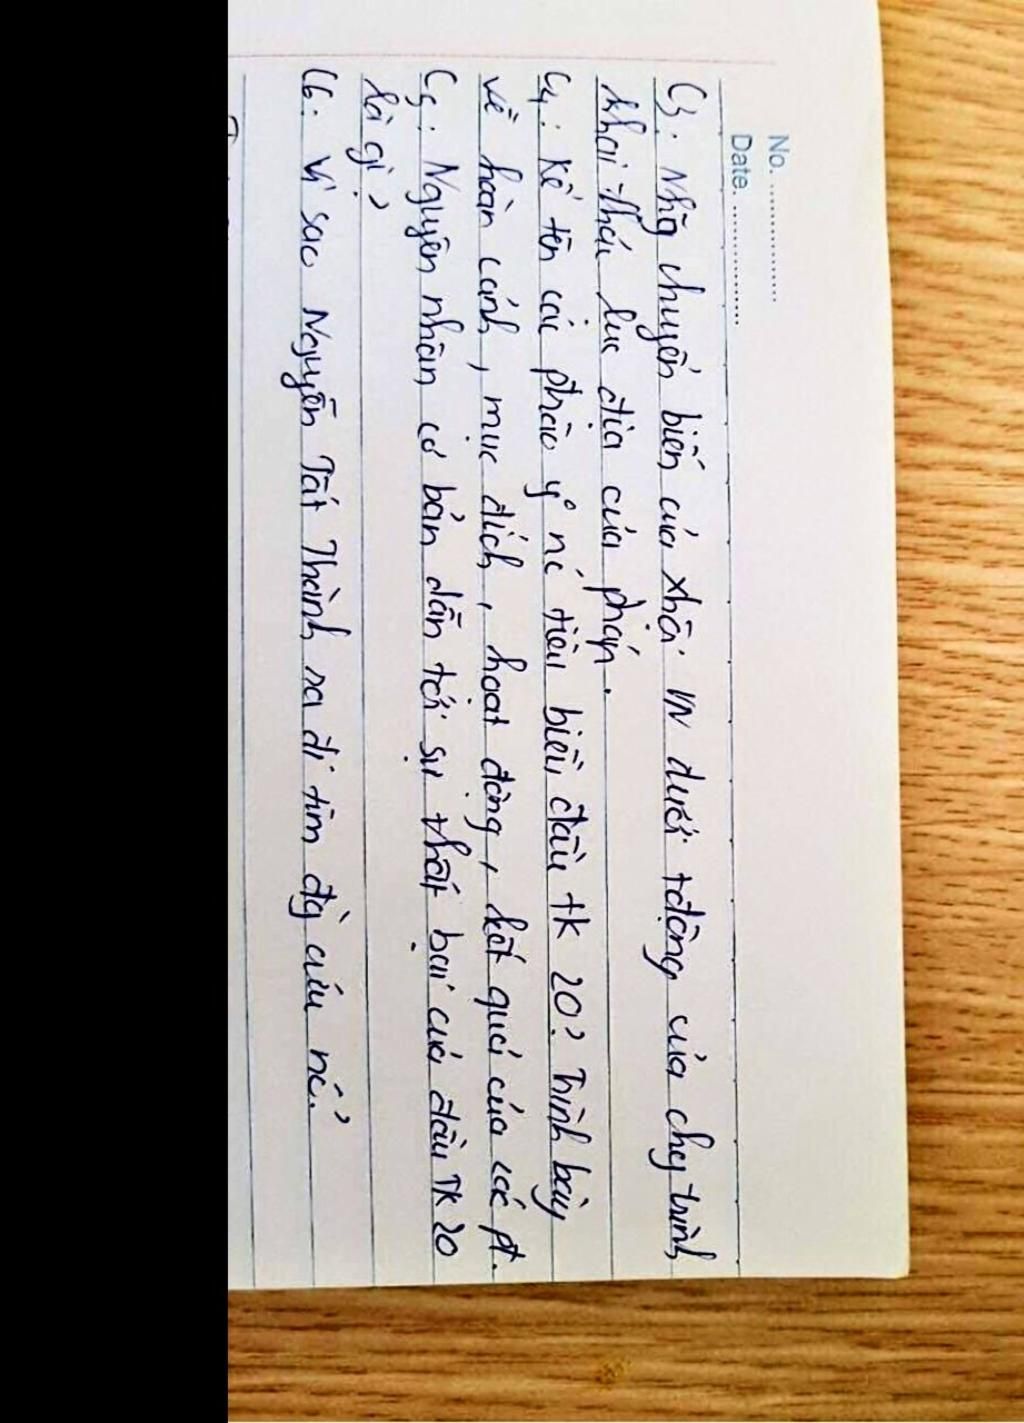 No. ...............
Date. ...............
C3: Nhg chuyển biến của xhội VN dưới tđộng của chg trình
khai thác lục địa của pháp.
C4: Kể tên các phào y nc tiêu biểu đầu tk 20? Trình bày
về hoàn cảnh, mục đích, hoạt động, kết quả của các pt.
C5: Nguyên nhân cơ bản dẫn tới sự thất bại của đầu TK 20
là gì?
C6: Vì sao Nguyễn Tất Thành ra đi tìm đg cứu nc?